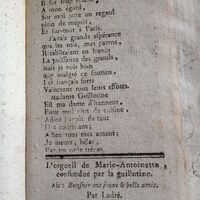 Il est trop
A mon égard.
Sur moi jette un regard
plein de mépris,
Et sur-tout à Paris.
J'avais grande espérance
que les rois, mes parens,
Rétabliraient en france
La puissance des grands;
Mais je vois bien
que malgré ce soutien,
Les français forts
Vaincront tous leurs efforts.
Madame Guillotine
Est ma dame d'honneur.
Pour moi plus de cuisine,
Adieu
Adieu tous mes amans;
Je meurs, hélas,
Par un
L'orgueil de Marie-Antoinette,
confondue par la guillotine.
Air: Bonsoir ma jeune & belle amie.
Par Ladré.